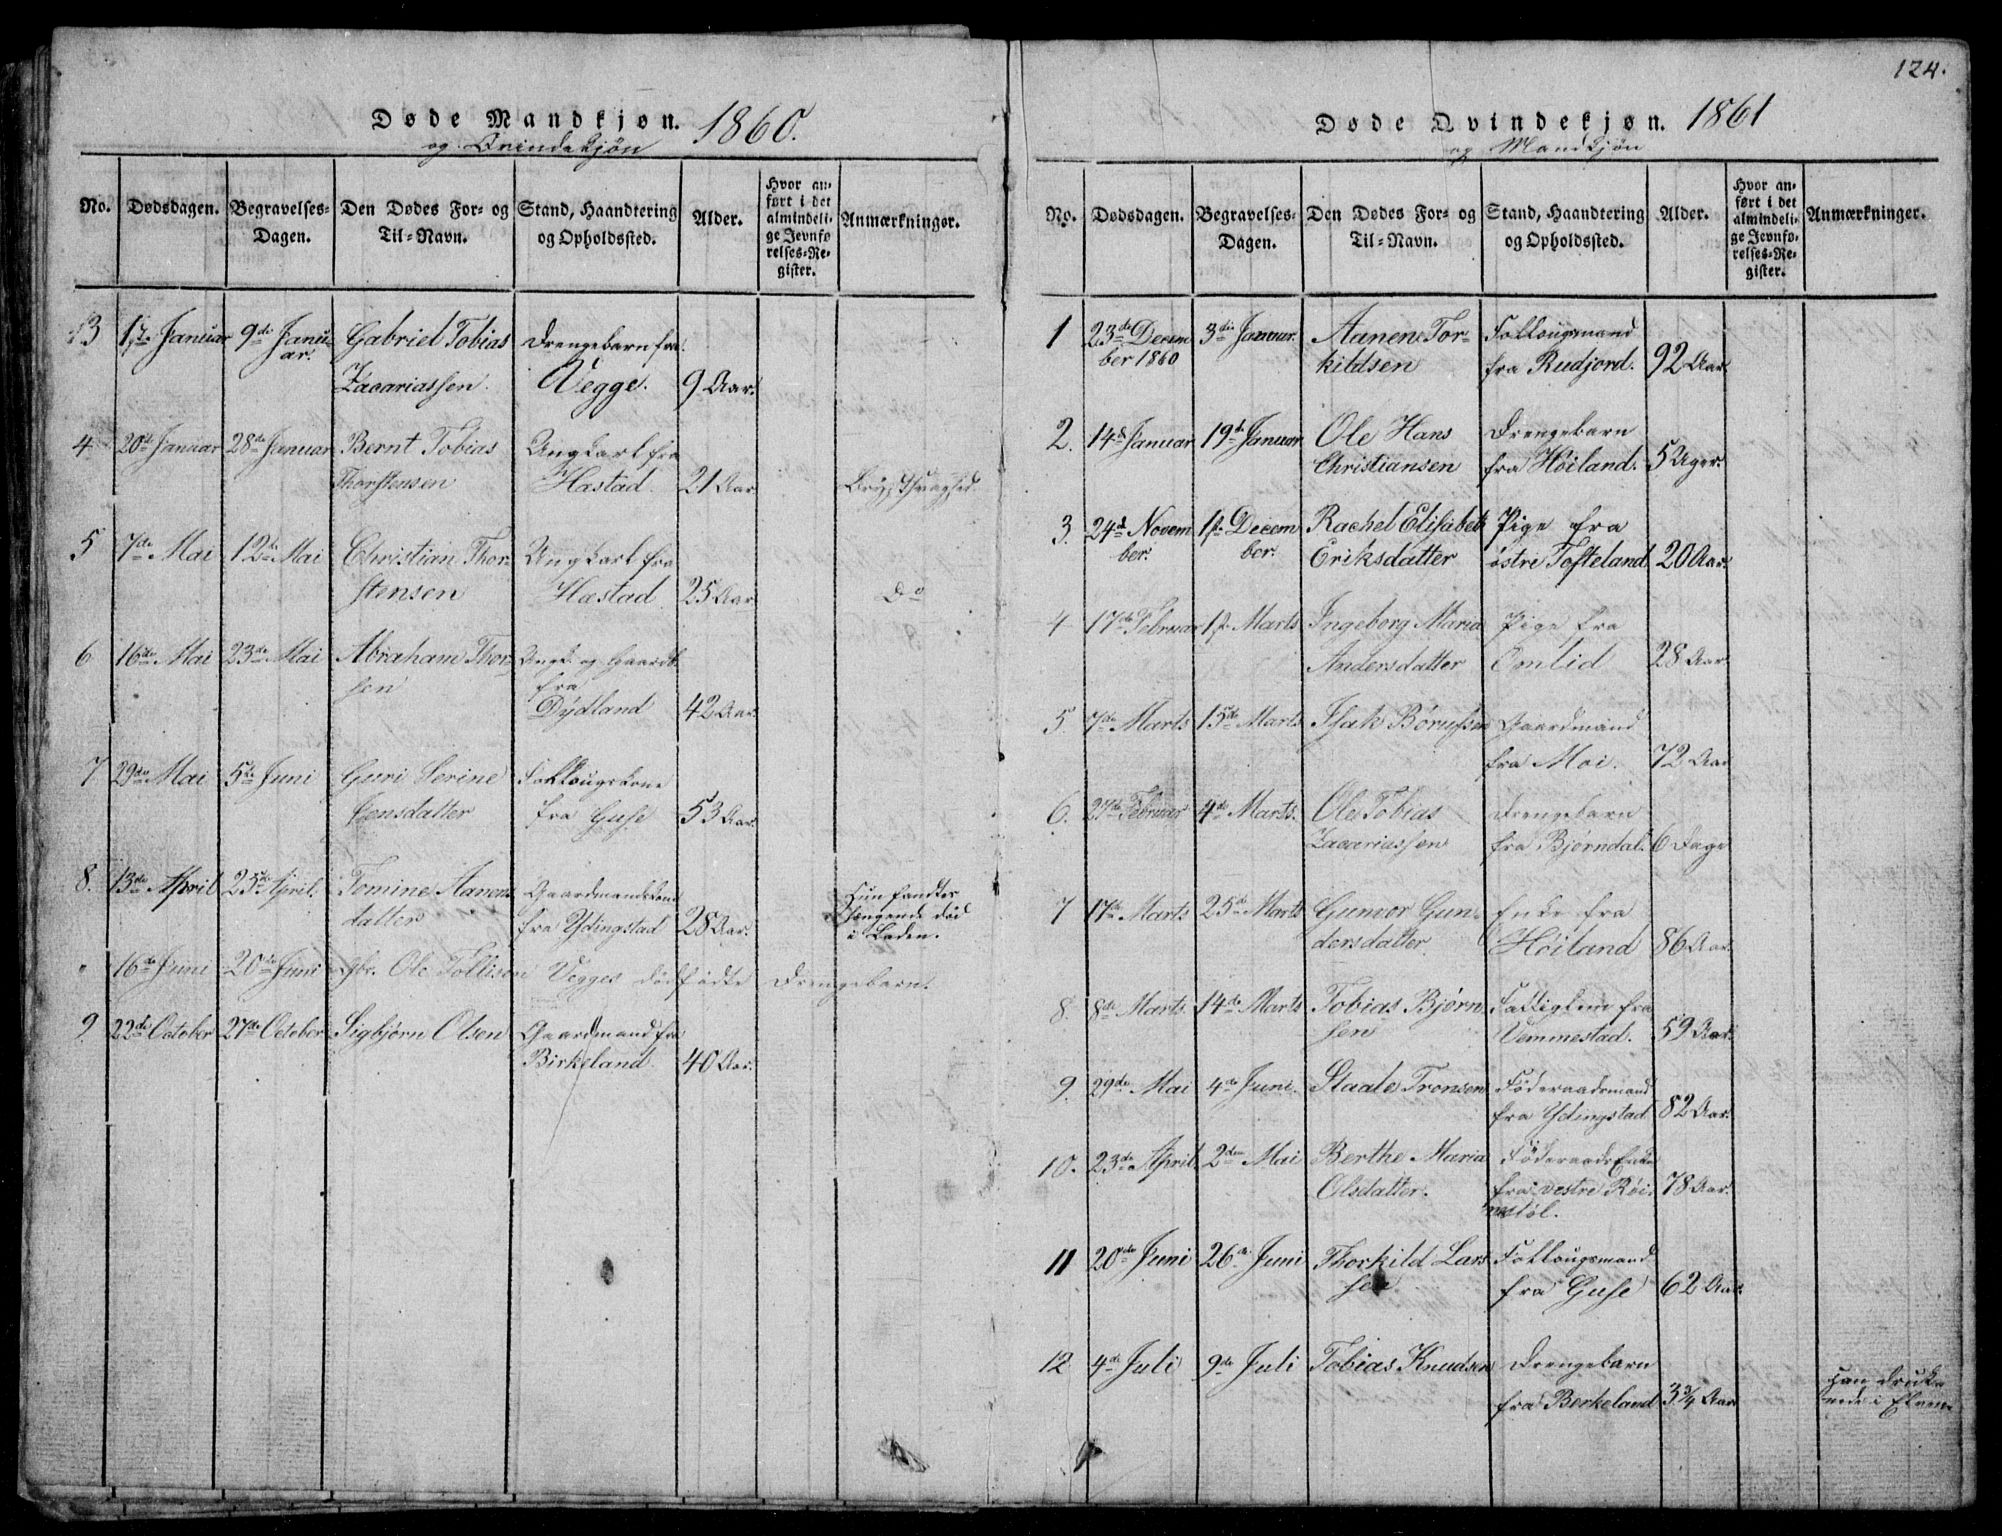 Døde Mandkjøn. 1860.
og Qvindekjøn
No. Dødsdagen. Begravelses-Dagen. Den Dødes For- og Til-Navn. Stand, Haandtering og Opholdssted. Alder. Hvor anført i det almindelige Jevnførelses-Register. Anmærkninger.
3 1ste Januar 9de Januar. Gabriel Tobias Zacariassen. Drengebarn fra Vegge. 9 Aar.
4 20de Januar 28de Januar Bernt Tobias Thorstensen Ungkarl fra Hæstad. 21 Aar.
5 7de Mai 12de Mai Christian Thorstensen Ungkarl fra Hæstad 25 Aar. Do
6 16de Mai 23de Mai Abraham Thorsen Ungk. og Gaardb. fra Dydland 42 Aar.
7 29de Mai 5te Juni Guri Serine Jensdatter Folkougskone fra Guse 53 Aar.
8. 13de April 25de April. Tomine Aanensdatter Gaardmandskone fra Ydingstad 28 Aar. Hun fandtes hængende død i Laden.
" 16de Juni 20de Juni Gbr. Ole Tollisen Vegges dødfødte Drengebarn.
9 22de October 27de October Sigbjørn Olsen Gaardmand fra Birkeland 40 Aar.
124.
Døde Qvindekjøn. 1861
og Mandkjøn
No. Dødsdagen. Begravelses-Dagen. Den Dødes For- og Til-Navn. Stand, Haandtering og Opholdssted. Alder. Hvor anført i det almindelige Jevnførelses-Register. Anmærkninger.
1 23de December 1860 3die Januar. Aanen Torkildsen Follougsmand fra Rudjord. 92 Aar.
2. 14de Januar 19de Januar Ole Hans Christiansen Drengebarn fra Høiland. 5 Uger.
3. 24de November. 1ste December. Rachel Elisabeth Eriksdatter Pige fra østre Tofteland 20 Aar.
4 17de Februar 1ste Marts Ingeborg Maria Andersdatter Pige fra Omlid 28 Aar.
5. 7de Marts 15de Marts Isak Børufsen Gaardmand fra Moi. 72 Aar
6. 27de Februar 4de Marts. Ole Tobias Zacariassen Drengebarn fra Bjørndal. 6 Dage
7 17de Marts 25de Marts Gunvor Gundersdatter Enke fra Høiland 86 Aar.
8. 8de Marts. 14de Marts Tobias Bjørnsen Fattiglem fra Vemmestad. 59 Aar.
9. 29de Mai 4de Juni. Staale Tronsen Føderaadsmand fra Ydingstad 82 Aar.
10. 23de April. 2den Mai Berthe Maria Olsdatter. Føderaads Enke fra vestre Røinestøl. 78 Aar.
11 20de Juni 26de Juni Thorkild Larssen Follougsmand fra Guse 62 Aar.
12. 4de Juli 9de Juli Tobias Knudsen Drengebarn fra Berkeland 3 3/4 Aar Han druknede i Elven.